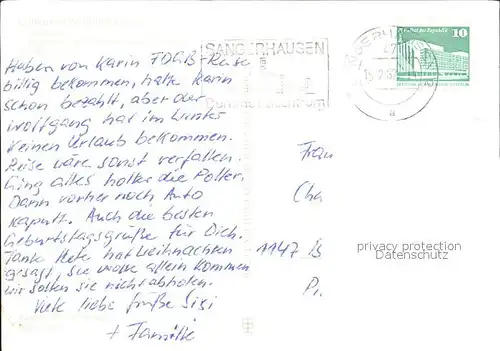 Haben von Karin FDGB-Reise
billig bekommen, hatte Karin
schon bezahlt, aber der
Wolfgang hat im Winter
keinen Urlaub bekommen.
Reise wäre sonst verfallen.
Ging alles holter die Polter.
Dann vorher noch Auto
kaputt. Auch die besten
Geburtstagsgrüße für Dich.
Tante Hete hat Weihnachten
gesagt, sie wolle allein kommen
wir sollen sie nicht abholen.
Viele liebe Grüße Sigi
+ Familie
SANGERHAUSEN
10
Frau
Cha
1147 B
privacy protection
Datenschutz